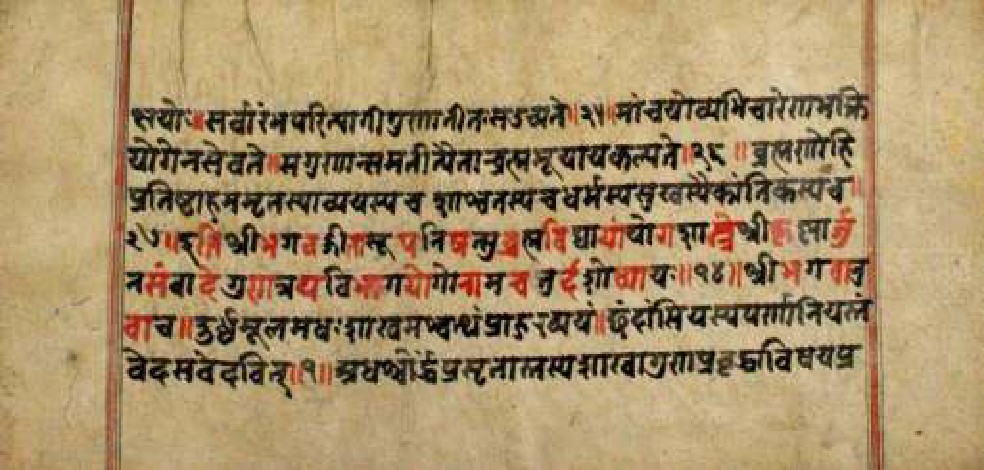 क्षयोः॥सर्वारंभपरित्यागीगुणातीतःसउच्यते॥२५॥मांचयोव्यभिचारेणभक्ति
योगेनसेवते॥सगुणान्समतीत्यैतान्ब्रह्मभूयायकल्पते॥२६॥ब्रह्मणोहि
प्रतिष्ठाहममृतस्याव्ययस्यच शाश्वतस्यचधर्मस्यसुखस्यैकांतिकस्यच॥
२७॥इतिश्रीभगवद्गीतासूपनिषत्सुब्रह्मविद्यायांयोगशास्त्रेश्रीकृष्णार्जु
नसंवादेगुणत्रयविभागयोगोनामचतुर्दशोध्यायः॥१४॥श्रीभगवानु
वाच॥उर्ध्वमूलमधःशाखमश्वत्थंप्राहुरव्ययं॥छंदांसियस्यपर्णानियस्तं
वेदसवेदवित्॥१॥अधश्चोर्द्ध्वंप्रसृतास्तस्यशाखागुणप्रवृद्धाविषयप्र